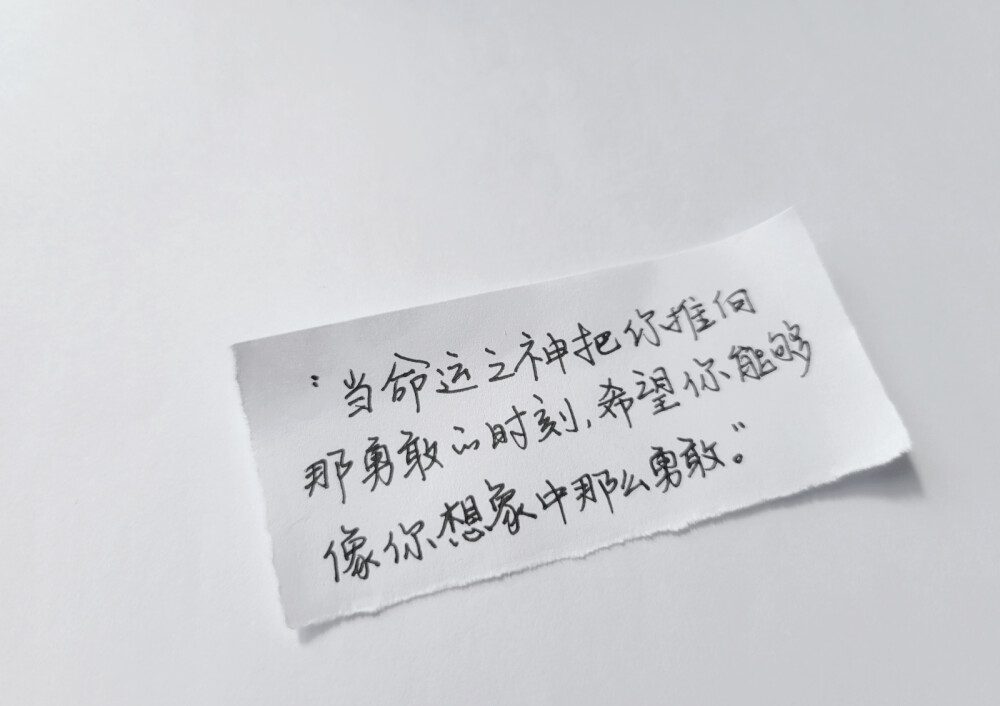 “当命运之神把你推向
那勇敢的时刻，希望你能够
像你想象中那么勇敢。”